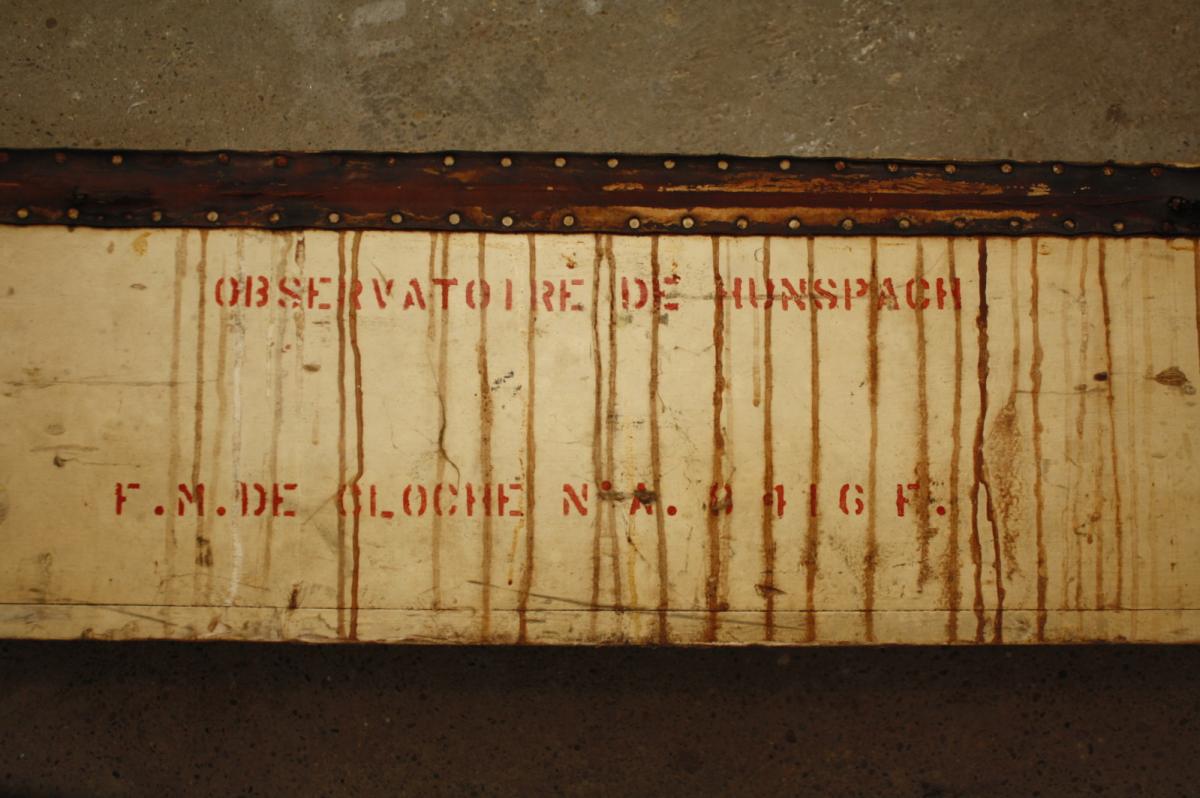 OBSERVATOIRE DE HUNSPACH
F.M.DE CLOCHE N°A. 8416 F.